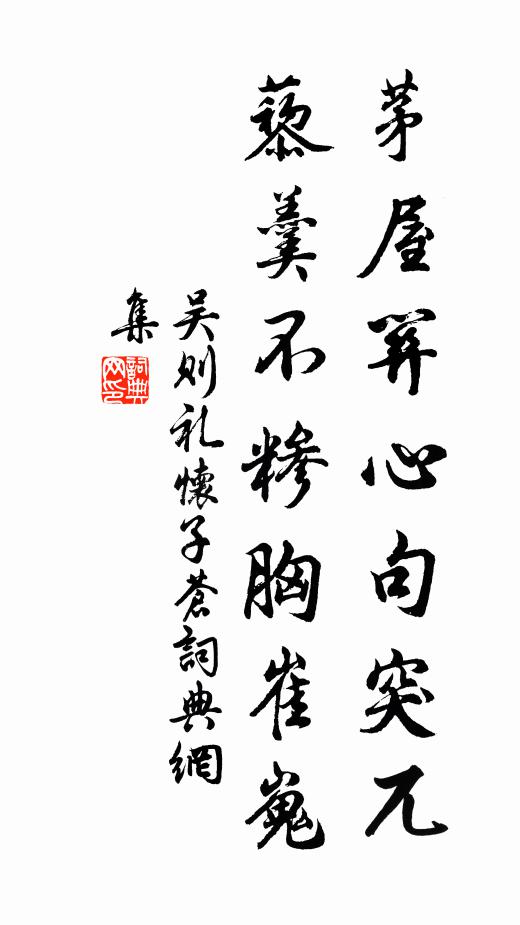 茅屋笄心句突兀
藜羹不糝胸崔嵬
吴则礼懷子蒼詞典網
集
詞典
网印